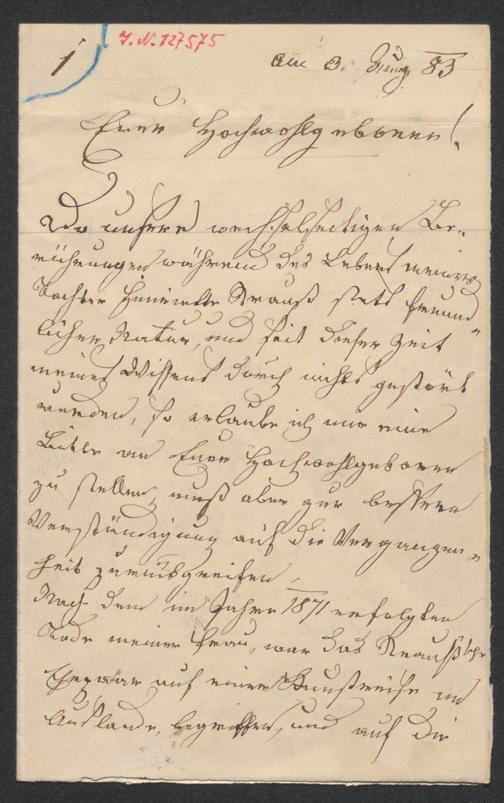 1
J. N. 127575
am 3. Juny 83
Euer Hochwohlgeboren!
Da unsere wechselseitigen Be-
rührungen während des Lebens meiner
Tochter Henriette Strauß stets freund-
licher Natur, und seit dieser Zeit
meines Wissens durch nichts gestört
wurden, so erlaube ich mir eine
Bitte an Euer Hochwohlgeboren
zu stellen, muß aber zur bessern
Verständigung auf die Vergangen-
heit zurückgreifen.
Nach dem im Jahre 1871 erfolgten
Tode meiner Frau, war das Strauß'sche
Ehepaar auf einer Kunstreise im
Auslande, begriffen, und auf die